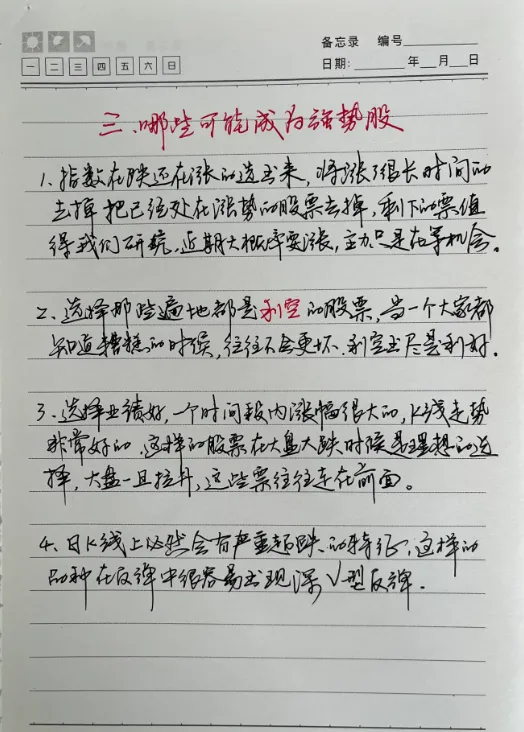 备忘录 编号
一 二 三 四 五 六 日 日期: 年 月 日
三.哪些可能成为强势股
1.指数在跌还在涨的选出来,将涨了很长时间的
去掉把已经处在涨势的股票去掉,剩下的票值
得我们研究,近期大概率要涨,主力只是在等机会。
2、选择那些遍地都是利空的股票,当一个大家都
知道糟糕的时候,往往不会更坏.利空出尽是利好.
3、选择业绩好,一个时间段内涨幅很大的,K线走势
非常好的.这样的股票在大盘大跌时候是理想的选
择,大盘一旦拉升,这些票往往走在前面。
4、日K线上必然会有严重超跌的特征,这样的
品种在反弹中很容易出现深V型反弹.